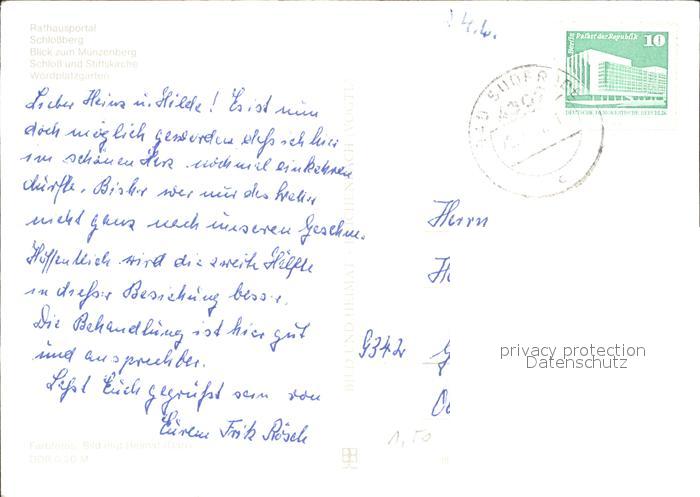 Rathausportal
Schloßberg
Blick zum Münzenberg
Schloß und Stiftskirche
Wordplatzgarten
Lieber Heinz u. Hilde! Es ist nun
doch möglich geworden daß ich hier
im schönen Harz nochmal einkehren
durfte. Bisher war nur das Wetter
nicht ganz nach unseren Geschm.
Hoffentlich wird die zweite Hälfte
in dieser Beziehung besser.
Die Behandlung ist hier gut
und ansprechbar.
Laßt Euch gegrüßt sein von
Eurem Fritz Rösch
DDR 0,20 M
BILD UND HEIMAT
Berlin Palast der Republik
10
DEUTSCHE DEMOKRATISCHE REPUBLIK
BAD SUDERODE
c
Herrn
9342
1,50
privacy protection
Datenschutz